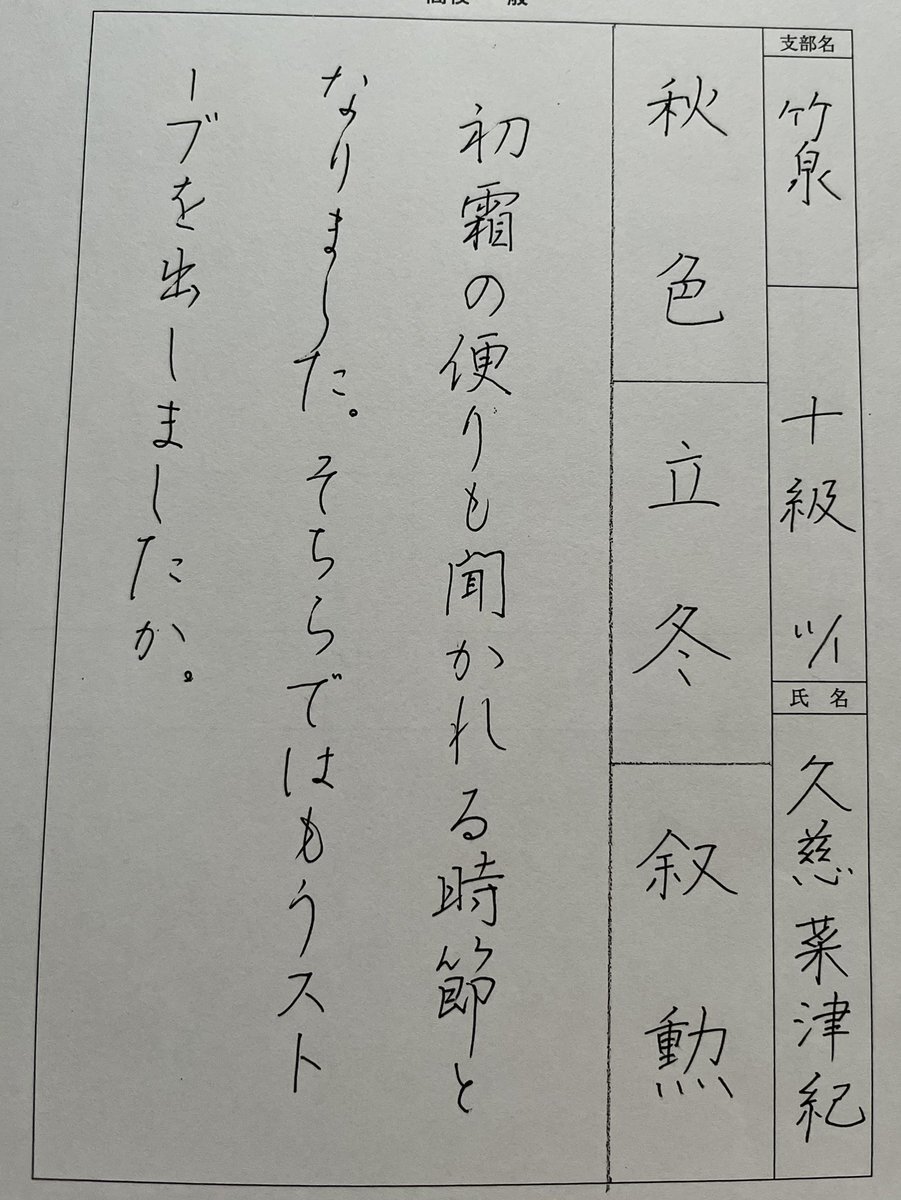 支部名
竹泉
十級
氏名
久慈菜津紀
秋色
立冬
叙勲
初霜の便りも聞かれる時節と
なりました。そちらではもうスト
ーブを出しましたか。